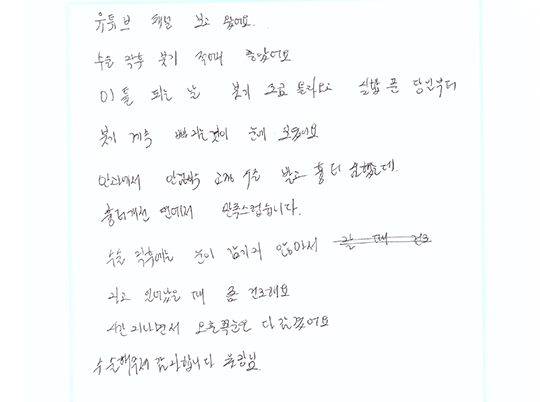 유튜브 채널 보고 왔어요.
수술 직후 붓기 적어서 놀랐어요
이틀 되는 날 붓기 조금 올라오고 실밥 푼 당일부터
붓기 계속 빠지는것이 눈에 보였어요
안과에서 안검하수 교정 수술 받고 흉터 심했는데.
흉터개선 면에서 만족스럽습니다.
수술 직후에는 눈이 감기지 않아서 잘 때 건조
자고 일어났을 때 좀 건조해요
시간 지나면서 오늘쪽눈은 다 감겼어요
수술해주셔 감사합니다 원장님